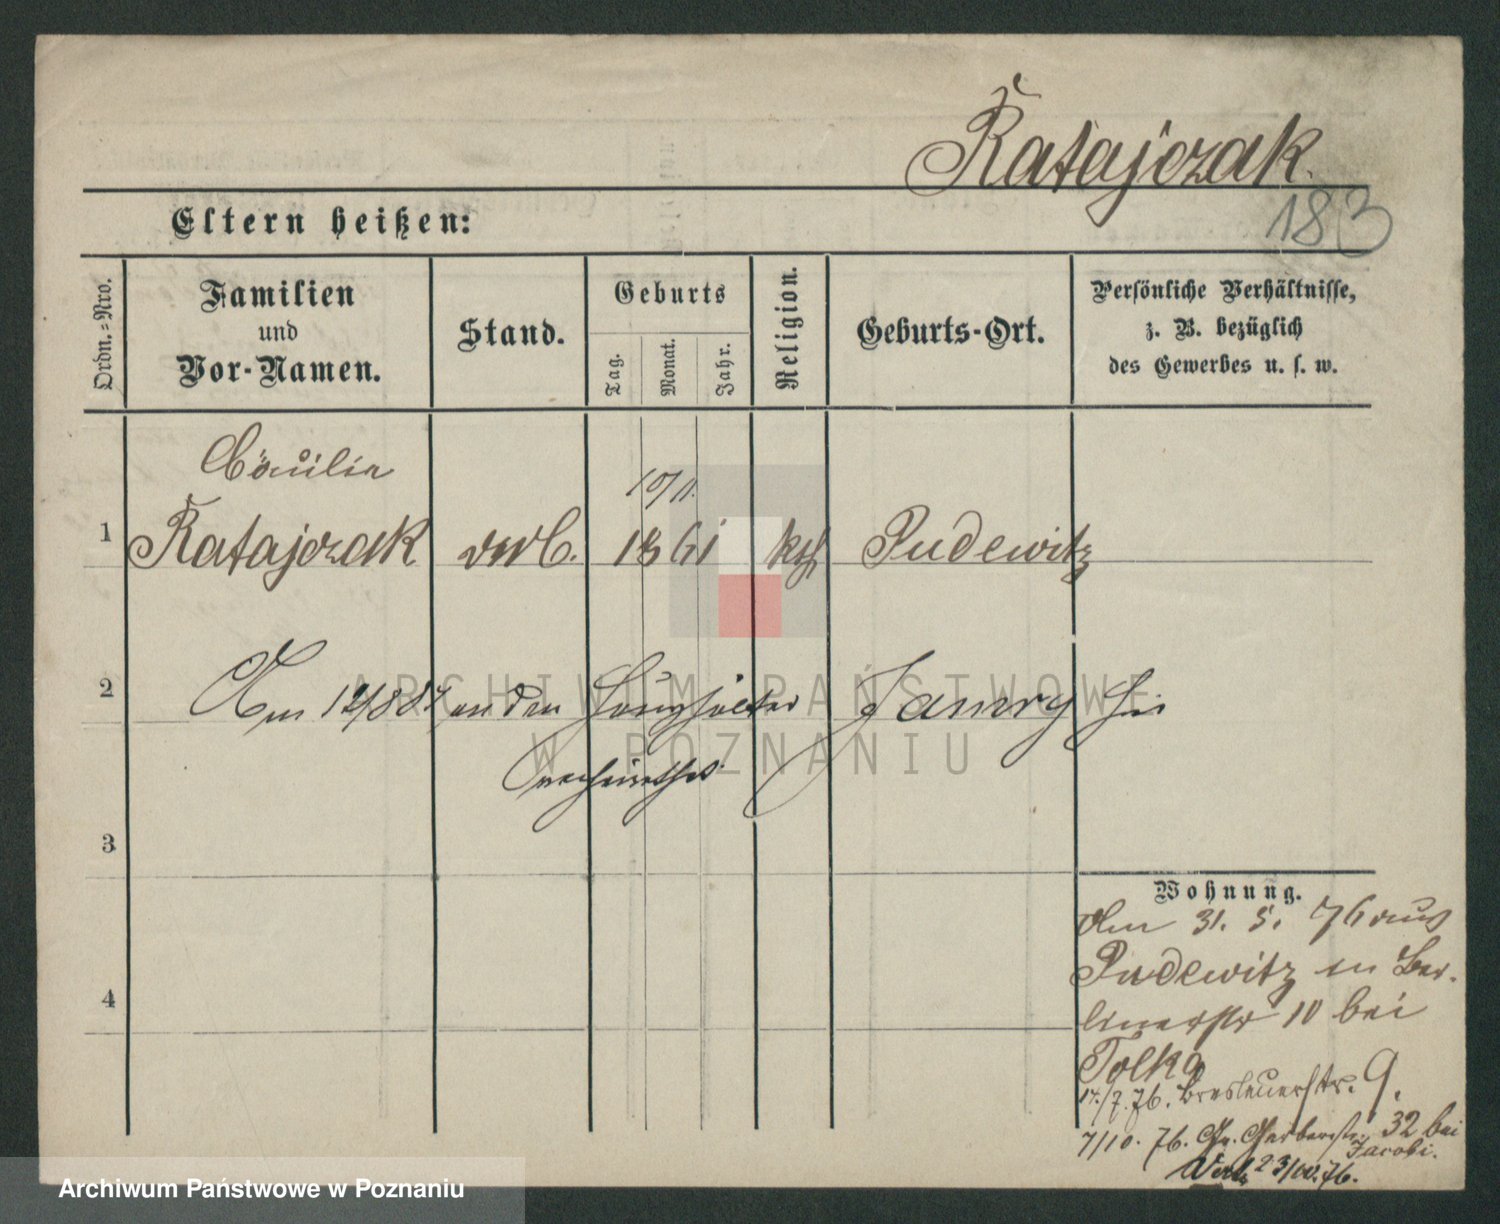 Ratajczak.
183
Eltern heißen:
Ordn.-Nro.
Familien
und
Vor-Namen.
Stand.
Geburts
Tag.
Monat.
Jahr.
Religion.
Geburts-Ort.
Persönliche Verhältnisse,
z. B. bezüglich
des Gewerbes u. s. w.
Cäcilie
10/11.
1 Ratajczak unv. 1861 kth Pudewitz
2 Am 12/8 84 an den Haushälter Jamry hier
verheirathet
3
4
Wohnung.
Am 31. 5. 76 aus
Pudewitz in Ber-
linerstr 10 bei
Tolka
14./7. 76. Breslauerstr. 9.
7/10. 76. Gr. Gerberstr. 32 bei
Jacobi.
23/10. 76.
ARCHIWUM PAŃSTWOWE
W POZNANIU
Archiwum Państwowe w Poznaniu